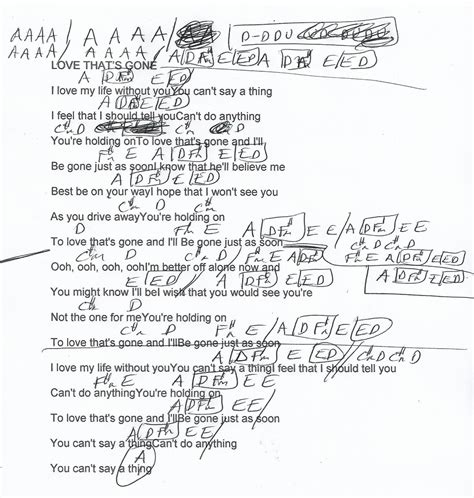 AAAA / A A A A / D-DDU
AAAA / A A A A / A D F#m E ED A D F#m E ED
LOVE THAT'S GONE
A D F#m E ED
I love my life without youYou can't say a thing
A D F#m E ED
I feel that I should tell youCan't do anything
C#m D C#m D
You're holding onTo love that's gone and I'll
F#m E A D F#m E ED
Be gone just as soonI know that he'll believe me
A D F#m E ED
Best be on your wayI hope that I won't see you
C#m D C#m
As you drive awayYou're holding on
D F#m E A D F#m E E / A D F#m E E
To love that's gone and I'll Be gone just as soon
C#m D C#m D
C#m D C#m D F#m E A D F#m F#m E A D F#m E ED
Ooh, ooh, ooh, ooh I'm better off alone now and
E ED A D F#m E ED A D F#m E ED
You might know I'll beI wish that you would see you're
C#m D
Not the one for meYou're holding on
C#m D F#m E / A D F#m E ED
To love that's gone and I'llBe gone just as soon
A D F#m E ED / C#m D C#m D
I love my life without youYou can't say a thingI feel that I should tell you
F#m E A D F#m E E
Can't do anythingYou're holding on
A D F#m E E
To love that's gone and I'llBe gone just as soon
A D F#m E E
You can't say a thingCan't do anything
A
You can't say a thing